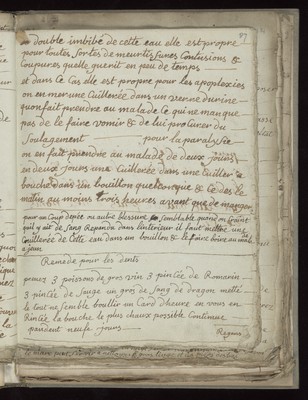 97
en double imbibé de cette eau elle est propre
pour toutes sortes de meurtrissures Contusions &
Coupures quelle guerit en peu de temps
et dans Ce Cas elle est propre pour les apoplexies
on en met une Cuillerée dans un verre durine
quon fait prendre au malade Ce qui ne manque
pas de le faire vomir & de lui procurer du
Soulagement pour la paralysée
on en fait prendre au malade de deux jours
en deux jours une Cuillerée dans une Cuiller a
bouche dans un bouillon quelconque & Ce des le
matin au moins trois heures avant que de manger
pour un Coup depée ou autre blessure semblable quand on Craint
quil y ait de Sang Repandu dans linterieur il faut mettre une
Cuillerée de Cette eau dans un bouillon & le faire boire au malade
a jeun
Remede pour les dents
prenez 3 poissons de gros vin 3 pintée de Romarin
3 pintée de Sauge un gros de Sang de dragon mettre
le tout ensemble bouillir un Card dheure en vous en
Rintée la bouche le plus chaux possible Continue
pandent neufe jours